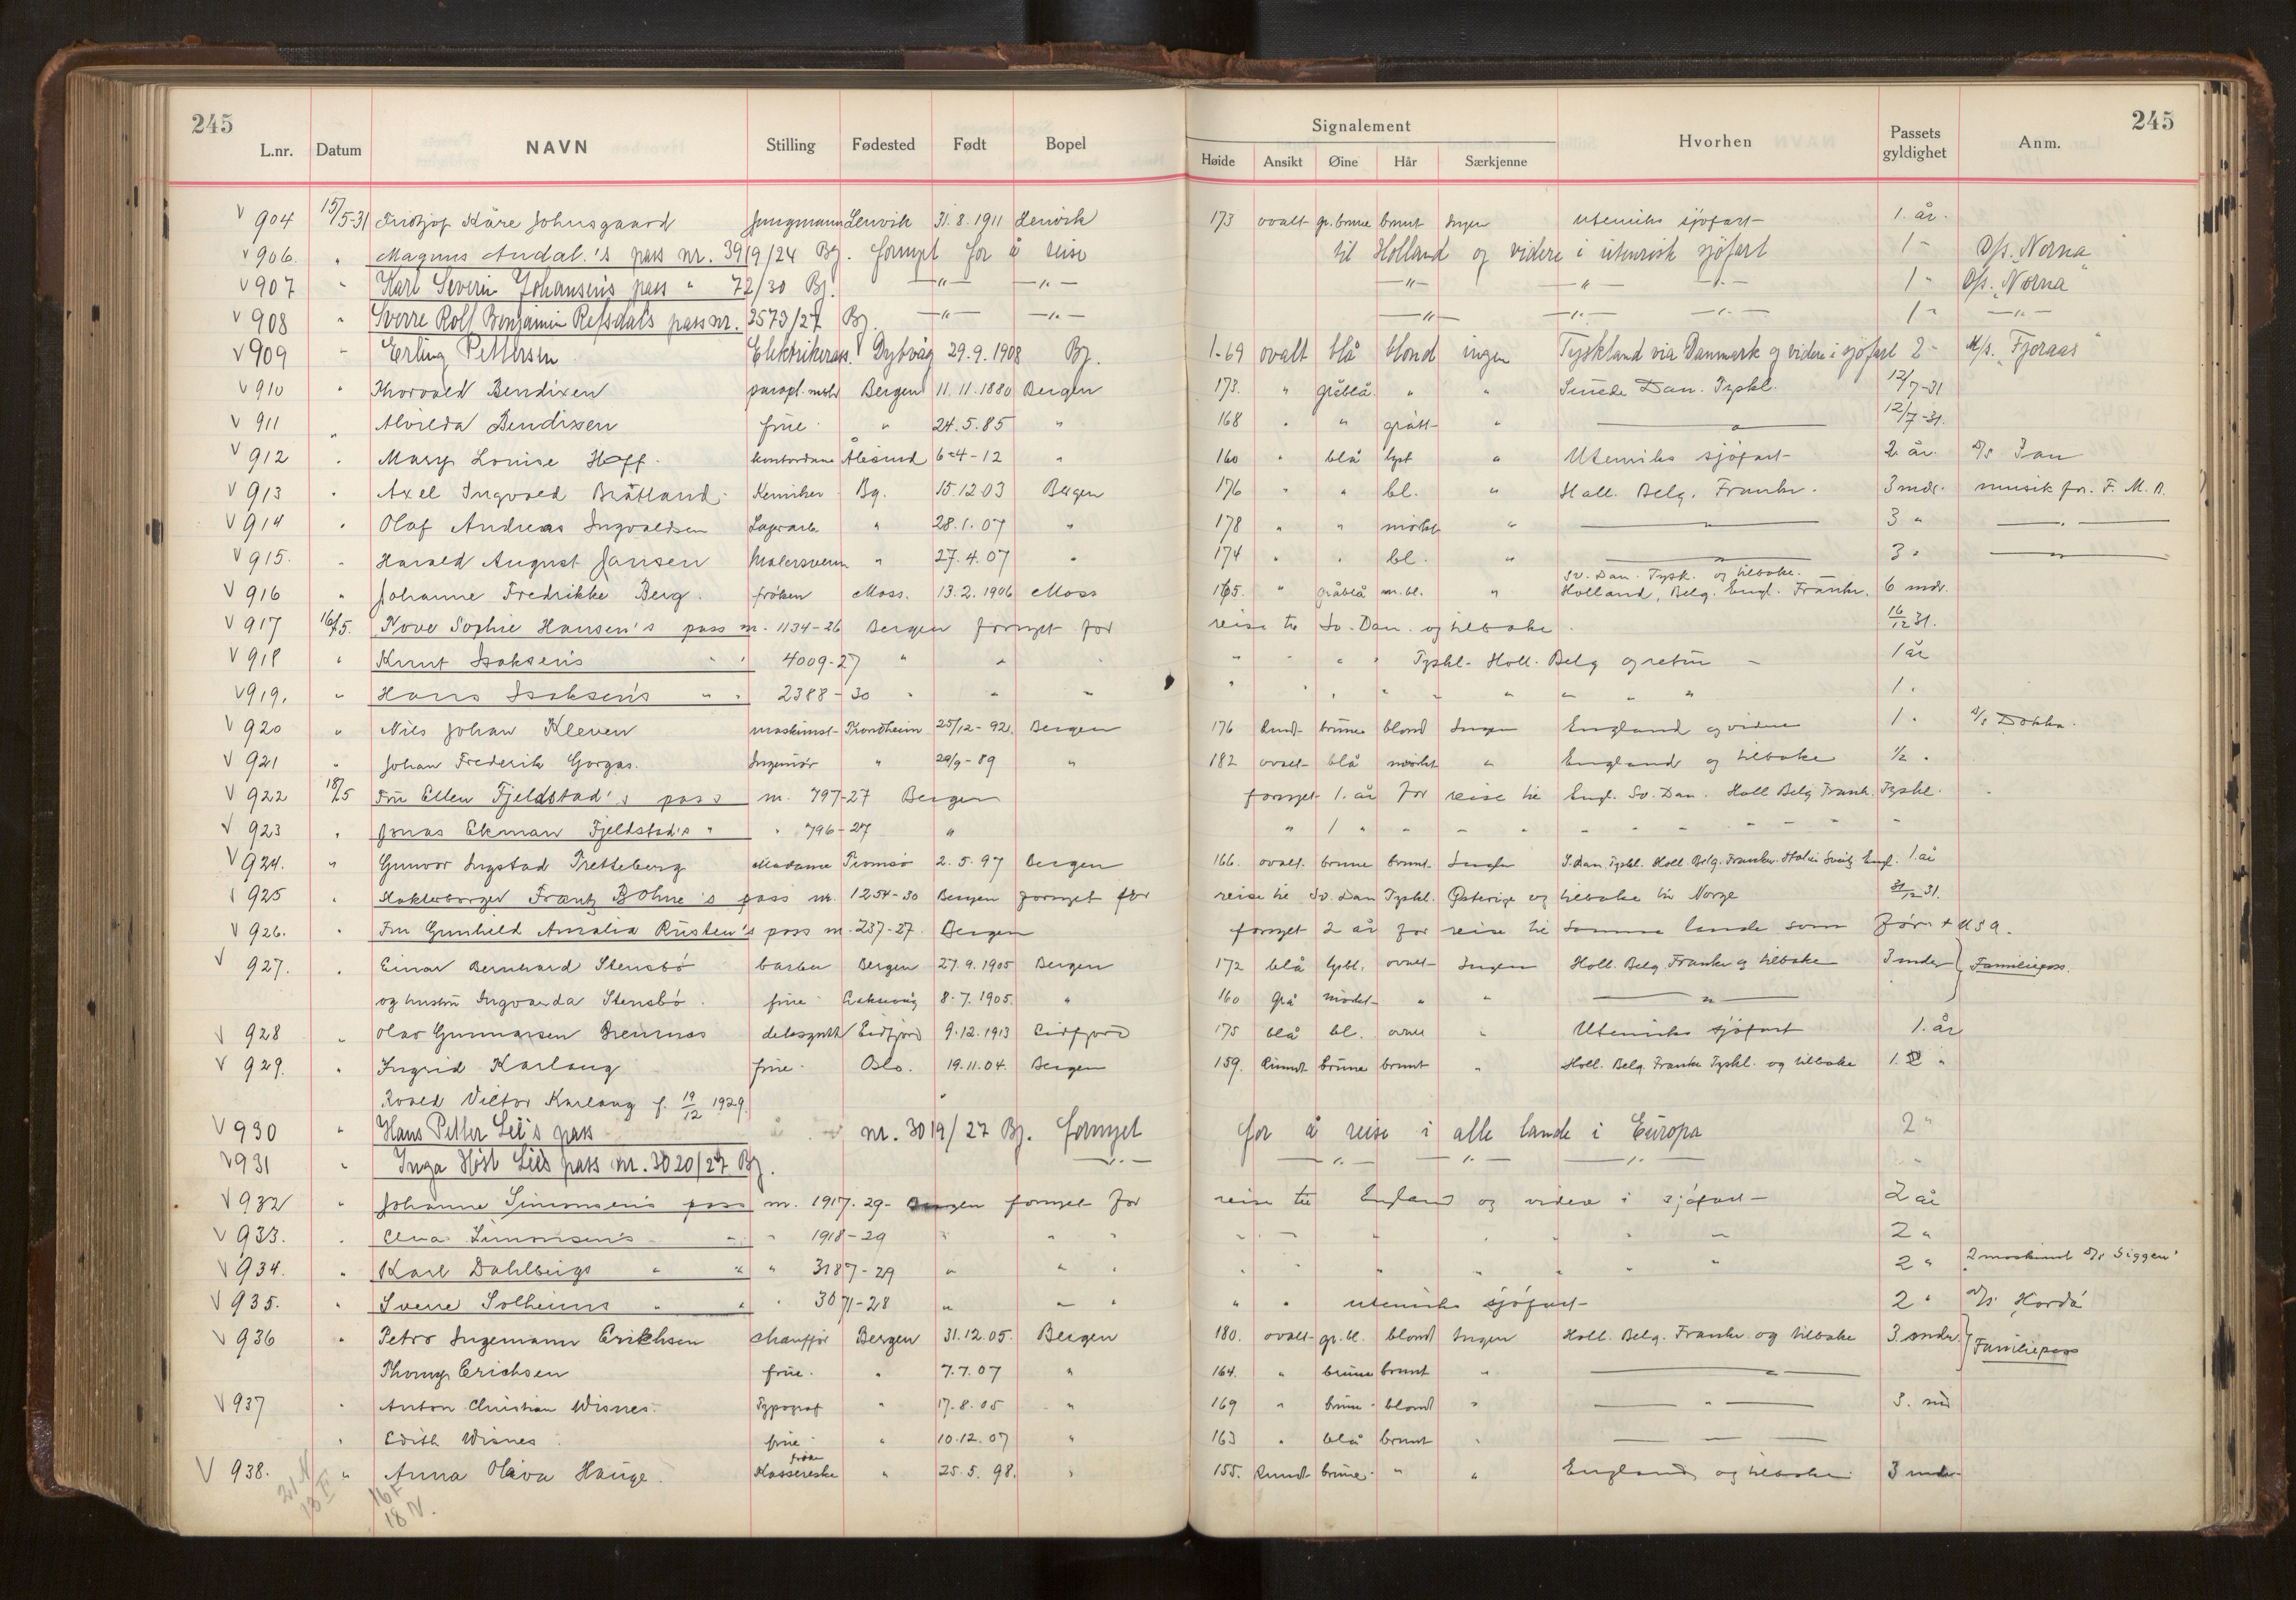 245 245
Signalement
L.nr. Datum NAVN Stilling Fødested Født Bopel Høide Ansikt Øine Hår Særkjenne Hvorhen Passets gyldighet Anm.
V 904 15/5-31 Fridtjof Kåre Johnsgaard Jungmann Lenvik 31.8.1911 Lenvik 173 ovalt gr.brune brunt Ingen utenriks sjøfart 1. år.
V 906. " Magnus Andal.'s pass nr. 3919/24 Bg. fornyet for å reise til Holland og videre i utenrisk sjøfart 1 - D/s. "Norna"
V 907 " Karl Severin Johansen's pass " 72/30 Bg. —"— —"— —"— —"— —"— 1 " D/s. "Norna"
V 908 " Sverre Rolf Benjamin Refsdal's pass nr. 2573/27 Bg. —"— —"— —"— —"— —"— 1 - —"—
V 909 " Erling Pettersen Elektrikerass. Dybvåg 29.9.1908 Bg. 1-69 ovalt blå blond ingen Tyskland via Danmark og videre i sjøfart 2 - M/s. "Fjoraas"
V 910 " Thorvald Bendixen Bergen 11.11.1880 Bergen 173. " gråblå " " Dan. Tyskl. 12/7-31
V 911 " Alvilda Bendixen frue " 24.5.85 " 168 " " grått " —"— 12/7-31.
V 912 " Mary Louise Hoff. kontordame Ålesund 6-4-12 " 160 " blå lyst " Utenriks sjøfart 2. år. D/s Jan
V 913 " Axel Ingvald Bråtland. Kemiker Bg. 15.12.03 Bergen 176 " " bl. " Holl. Belg. Frankr. 3 mdr. musik for. F. M. A.
V 914 " Olaf Andreas Ingvaldsen Lagerarb. " 28.1.07 " 178 " " mörkt " —"— 3 " —"—
V 915. " Harald August Jansen Malersvenn " 27.4.07 " 174 " " bl. " —"— 3 " —"—
V 916 " Johanne Fredrikke Berg. frøken Moss. 13.2.1906 Moss 165. " gråblå m.bl. " Sv. Dan. Tysk. og tilbake. Holland, Belg. Engl. Frankr. 6 mdr.
V 917 16/5. Tove Sophie Hansen's pass nr. 1134-26 Bergen fornyet for reise til Sv. Dan. og tilbake. 16/12 31.
V 918 " Knut Isaksen's " " 4009-27 " " " " " " " Tyskl. Holl. Belg og retur - 1 år
V 919. " Hans Isaksen's " " 2388-30 " " " " " " " " " " " " 1 "
V 920 " Nils Johan Kleven maskinist Trondheim 25/12-92. Bergen 176 Rund brune blond Ingen England og videre 1 " D/s Dokka.
V 921 " Johan Frederik Gorgas. Ingeniør " 29/9-89 " 182 ovalt blå mörkt " England og tilbake 1/2 "
V 922 18/5 Fru Ellen Fjeldstad's pass nr. 797-27 Bergen fornyet 1. år for reise til Engl. Sv. Dan. Holl Belg Frank. Tyskl.
V 923 " Jonas Ekman Fjeldstad's " " 796-27 " " 1 " " " " " " " " " " "
V 924. " Gunvor Ingstad Tretteberg Madame Tromsø 2.5.97 Bergen 166. ovalt. brune brunt. Ingen S. Dan. Tyskl. Holl. Belg. Frankr. Italia Sveitz Engl. 1. år
V 925 " Frantz Bohne's pass nr. 1254-30 Bergen fornyet for reise til Sv. Dan Tyskl. Østerige og tilbake til Norge 31/12 31.
V 926. " Fru Gunhild Amalia Rusten's pass nr. 237-27. Bergen fornyet 2 år for reise til samme lande som før + USA.
V 927. " Einar Bernhard Stensbö barber Bergen 27.9.1905 Bergen 172 blå lysbl. ovalt Ingen Holl. Belg Frankr og tilbake 3 mdr } Familiepass.
og hustru Ingvarda Stensbö. frue 8.7.1905. " 160 Grå mörkt " " —"—
V 928 " Olav Gunnarsen Eidfjord 9.12.1913 Eidfjord 175 blå bl. ovalt " Utenriks sjöfart 1. år
V 929. " Ingrid Karlang frue. Oslo. 19.11.04. Bergen 159. Rundt brune brunt " Holl. Belg. Frankr Tyskl. og tilbake 1. "
Roald Victor Karlang f. 19/12 1929.
V 930 " Hans Petter Lie's pass nr. 3019/27 Bg. fornyet for å reise i alle lande i Europa 2 "
V 931 " Inga Höst Lie's pass nr. 3020/27 Bg. —"— —"— —"— —"—
V 932 " Johanne Simonsen's pass nr. 1917.29- Bergen fornyet for reise til England og videre i sjöfart 2 år
V 933. " Simonsen's " " 1918-29 " " " " " " " " " 2 "
V 934. " Karl Dahlberg's " " " 3187-29 " " " " " " " " " " 2 " 2 maskinist D/s Siggen"
V 935. " Sverre Solheims " " " 3071-28 " " " " " utenriks sjöfart 2 " D/s Hordå
V 936 " Petro Ingemann Erichsen chauffør Bergen 31.12.05. Bergen 180. ovalt gr.bl. blond Ingen Holl. Belg. Frankr og tilbake 3. mdr. } Familiepass
Erichsen frue. " 7.7.07 " 164. " brune brunt " —"—
V 937 " Anton Christian Wisnes. Typograf " 17.8.05 " 169 " brune blond " —"— 3. md
" Edith Wisnes. frue " 10.12.07 " 163 " blå brunt " —"—
V 938. " Anna Oliva Hauge. frøken Kassererske " 25.5.98. " 155. Rundt brune " " England og tilbake 3 mdr
21 N 16 F
13 F 18 N.